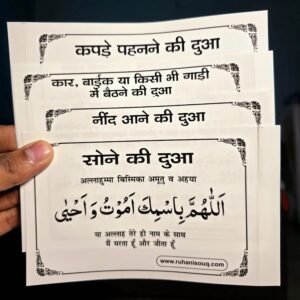 कपड़े पहनने की दुआ
कार, बाईक या किसी भी गाड़ी
में बैठने की दुआ
नींद आने की दुआ
सोने की दुआ
अल्लाहुम्मा बिस्मिका अमूतु व अहया
اَللّٰهُمَّ بِاسْمِكَ اَمُوْتُ وَ اَحْيٰى
या अल्लाह तेरे ही नाम के साथ
मैं मरता हूँ और जीता हूँ
www.ruhanisouq.com